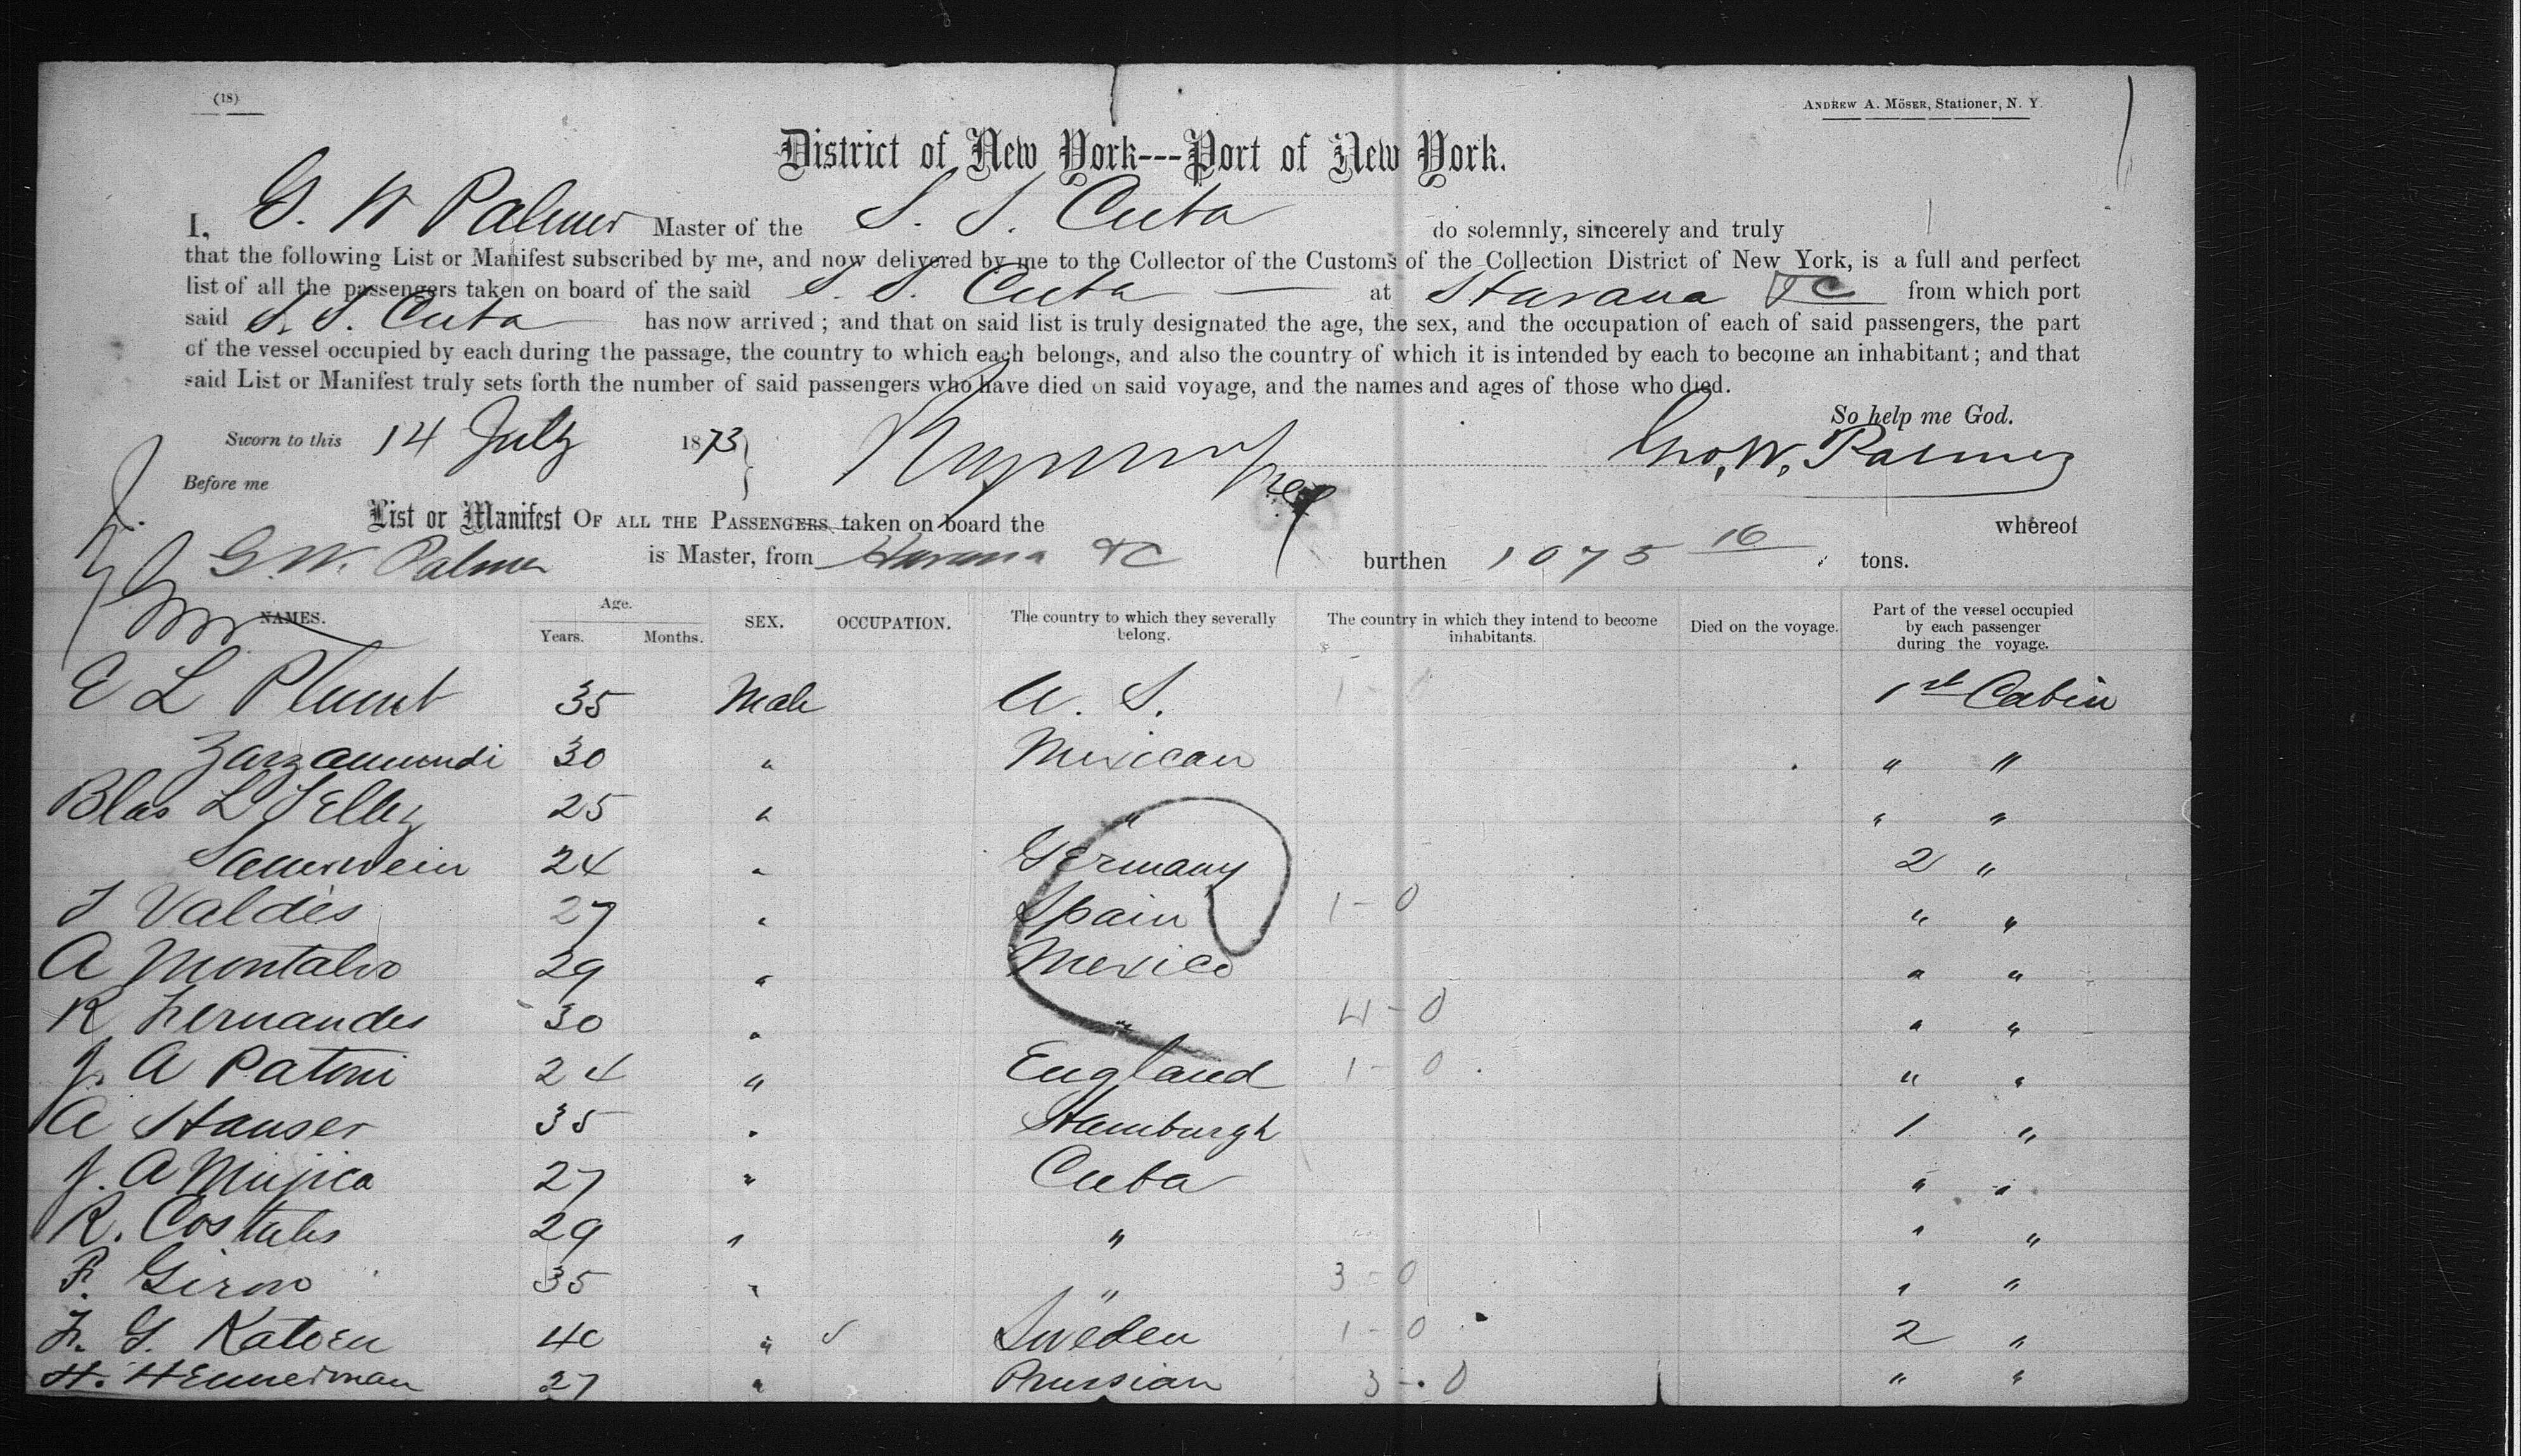 (18)
ANDREW A. MÖSER, Stationer, N. Y.
District of New York---Port of New York.
I, G. W Palmer Master of the S. S. Cuba do solemnly, sincerely and truly
that the following List or Manifest subscribed by me, and now delivered by me to the Collector of the Customs of the Collection District of New York, is a full and perfect
list of all the passengers taken on board of the said S. S. Cuba at Havana &C from which port
said S. S. Cuba has now arrived; and that on said list is truly designated the age, the sex, and the occupation of each of said passengers, the part
of the vessel occupied by each during the passage, the country to which each belongs, and also the country of which it is intended by each to become an inhabitant; and that
said List or Manifest truly sets forth the number of said passengers who have died on said voyage, and the names and ages of those who died.
So help me God.
Sworn to this 14 July 1873
Geo. W. Palmer
Before me
List or Manifest OF ALL THE PASSENGERS taken on board the whereof
G. W. Palmer is Master, from Havana &C burthen 1075 16 tons.
NAMES. Age. Years. Months. SEX. OCCUPATION. The country to which they severally belong. The country in which they intend to become inhabitants. Died on the voyage. Part of the vessel occupied by each passenger during the voyage.
E L 35 Male U. S. 1 - 0 1st Cabin
30 " Mexican " "
Blas L Tellez 25 " " " "
Sauerwein 24 " Germany 2 "
J Valdés 27 " Spain 1 - 0 " "
A Montalvo 29 " Mexico " "
R Fernandes 30 " " 4 - 0 " "
J. A Patoni 24 " England 1 - 0 " "
A Hauser 35 " Hamburgh 1 "
J. A Mujica 27 " Cuba " "
R. Costales 29 " " " "
F. Giron 35 " " 3 - 0 " "
F. G. Katoen 40 " Sweden 1 - 0 2 "
H. Hennerman 27 " Prussian 3 - 0 " "